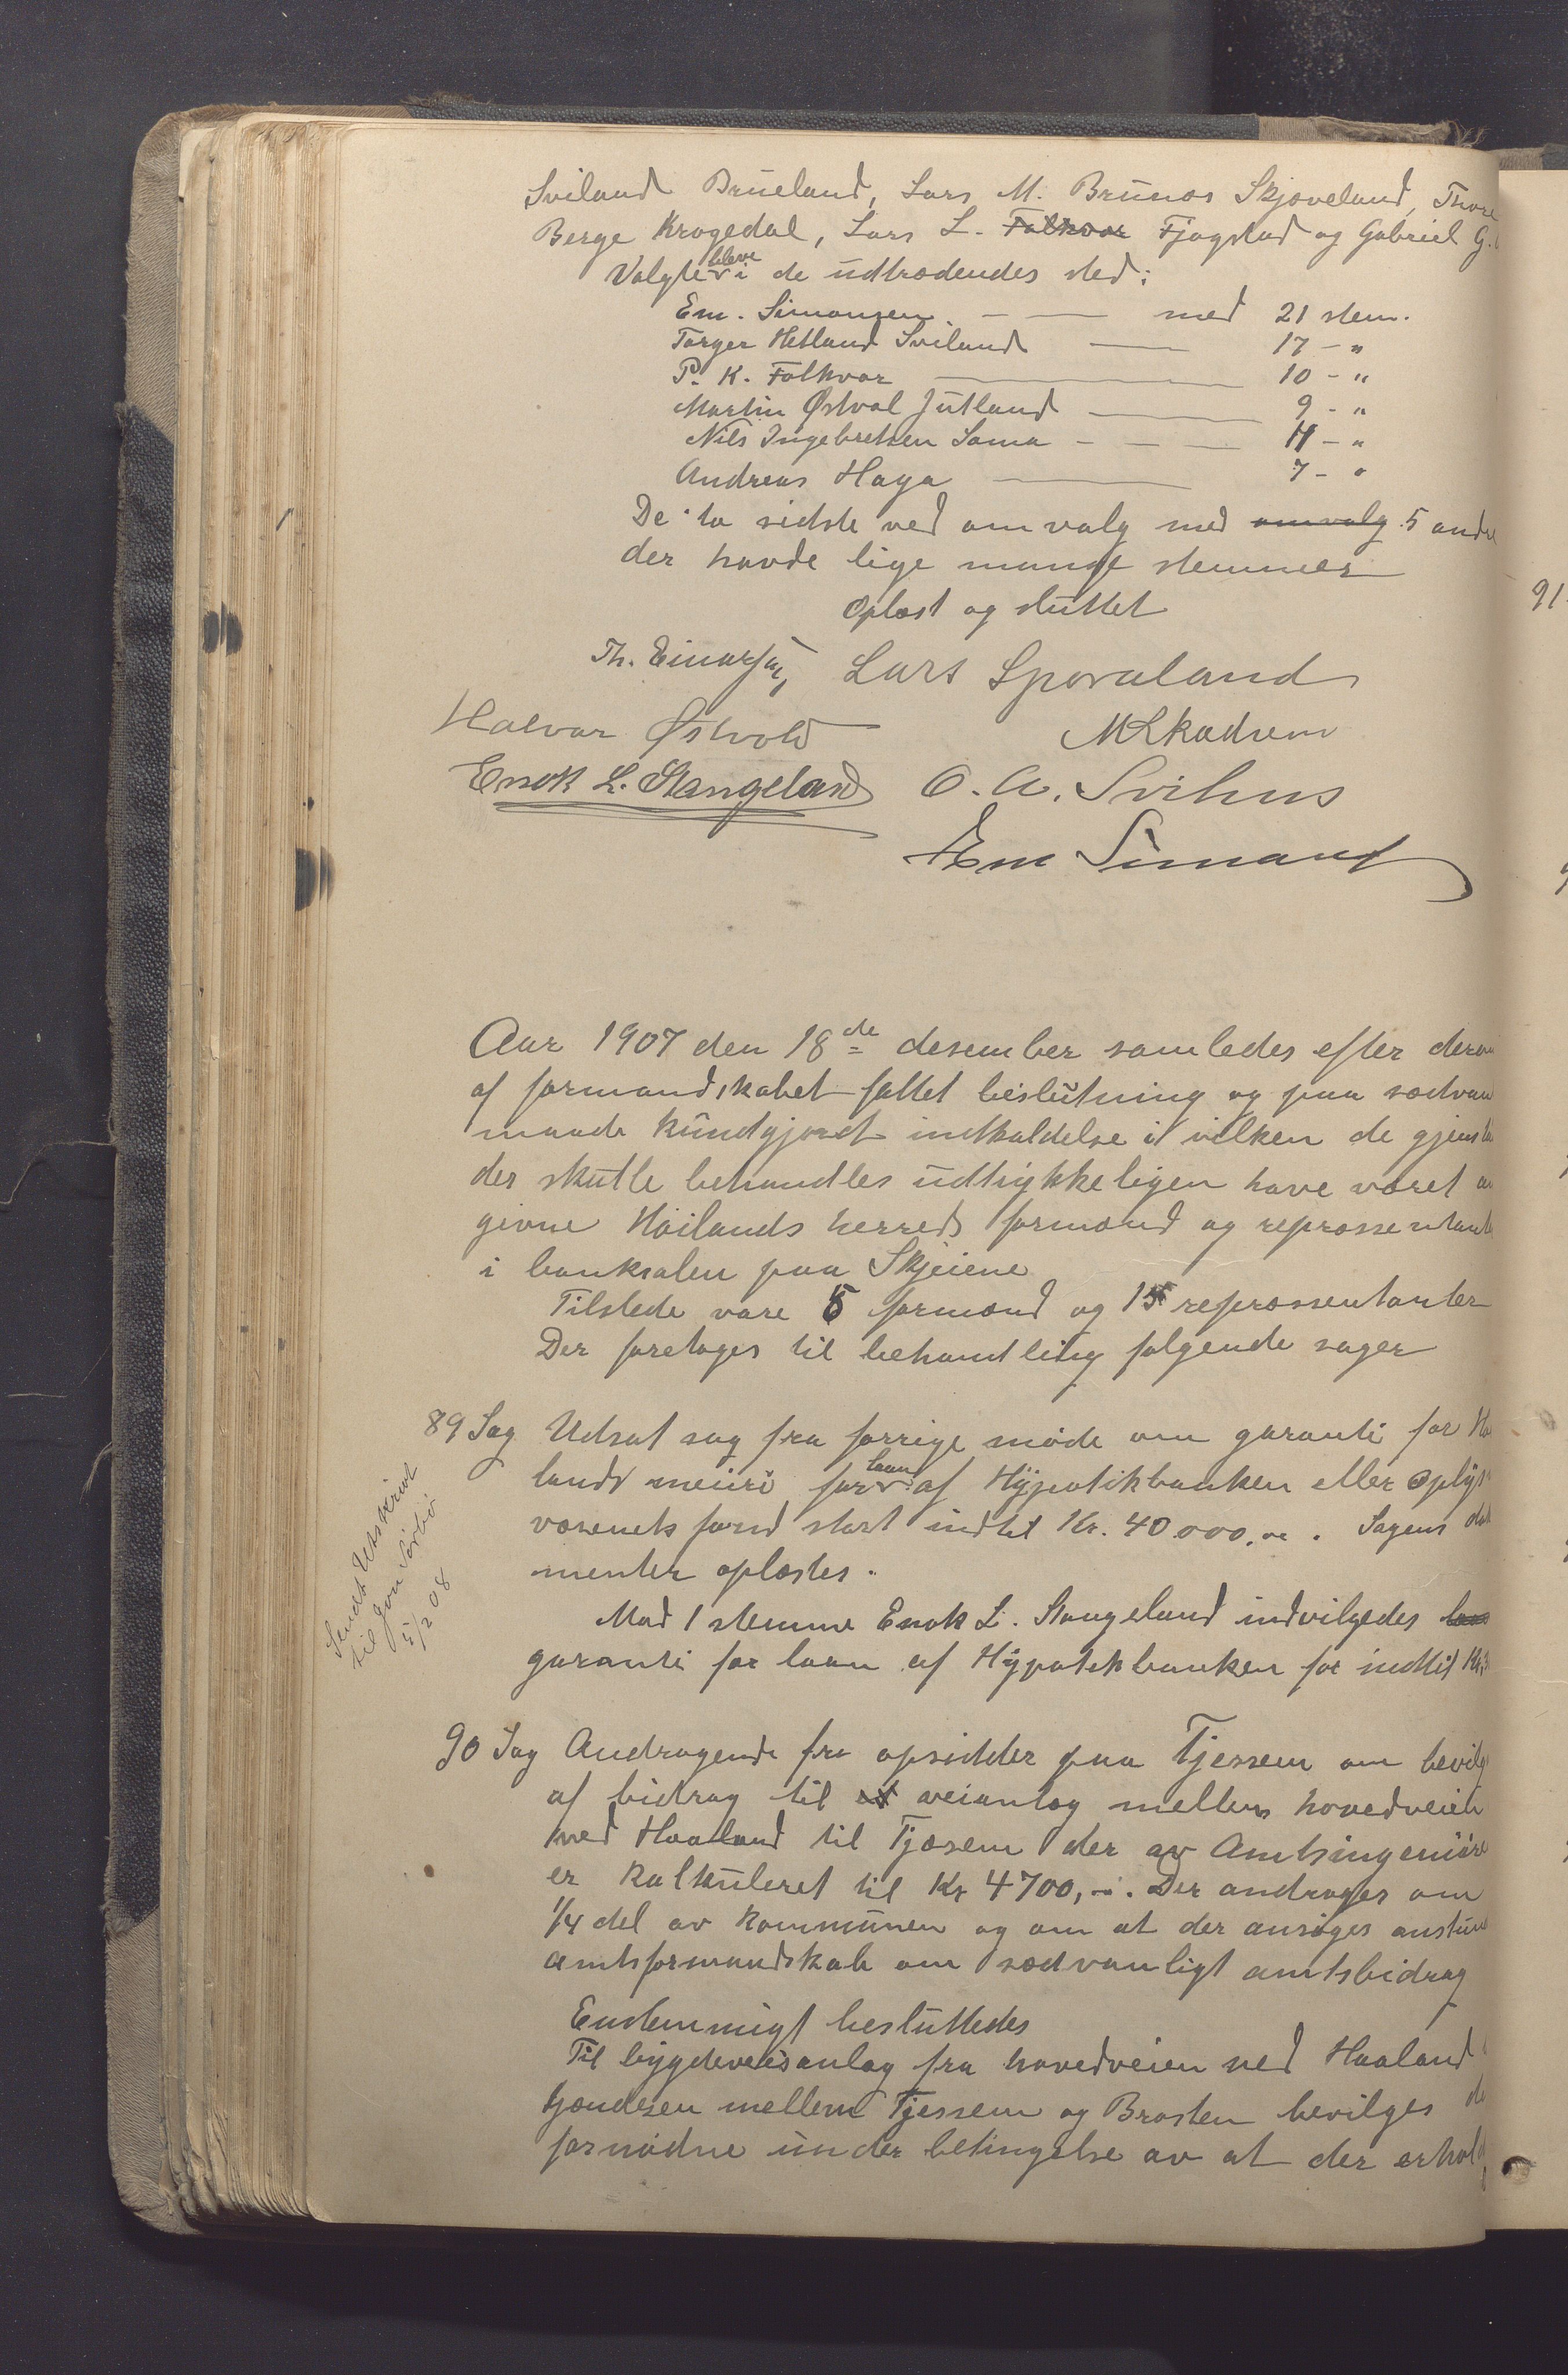 Sviland Brueland, Lars M. Brunæs Skjæveland, Thore
Berge Krogedal, Lars L. Folkvor Fjogstad og Gabriel G.
Valgte bleve i de udtrædendes sted:
Em. Simonsen — — med 21 stem.
Torger Hetland Sviland — 17 - "
P. K. Folkvor — 10 - "
Martin Østvol Jutland — 9 - "
Nils Ingebretsen Soma - — — "
Andreas Haga — 7 - "
De to sidste ved omvalg med omvalg 5 andre
der havde lige mange stemmer
Oplæst og sluttet
Th. Einarsen, Lars Sporaland
Halvor Østvold M Skadsem
Enok L. Stangeland O. A. Svihus
Em Simons
Aar 1907 den 18de desember samledes efter derom
af formandskabet fattet beslutning og paa sædvan
maade kundgjordt indkaldelse i vilken de gjensta
der skulle behandles udtrykkeligen have været an
givne Höilands herreds formænd og repræssentante
i banksalen paa Skjeiene
Tilstede vare 5 formænd og 15 repræssentanter
Der foretages til behandling følgende sager
89 Sag Udsat sag fra forrige møde om garanti for Hö
lands meieri for laan af Hypotekbanken eller Oplys
væsenets fond stort indtil Kr. 40.000,00. Sagens dok
menter oplæstes.
Mod 1 stemme Enok L. Stangeland indvilgedes laan
garanti for laan af Hypotekbanken for indtil Kr.
Sendt Utskrivt
til Jon Sörbö
5/2 08
90 Sag Andragende fra opsidder paa Tjessem om bevilg
af bidrag til et veianlæg mellem hovedveien
ved Haaland til Tjæsem der av Amtsingeniøre
er kalkuleret til Kr 4700,-. Der andrages om
1/4 del av kommunen og om at der ansøges
amtsformandskab om sædvanligt amtsbidrag
Enstemmigt besluttedes
Til bygdeveisanlæg fra hovedveien ved Haaland
mellem Tjessem og Brasten bevilges de
fornødne under betingelse av at der erhol
91